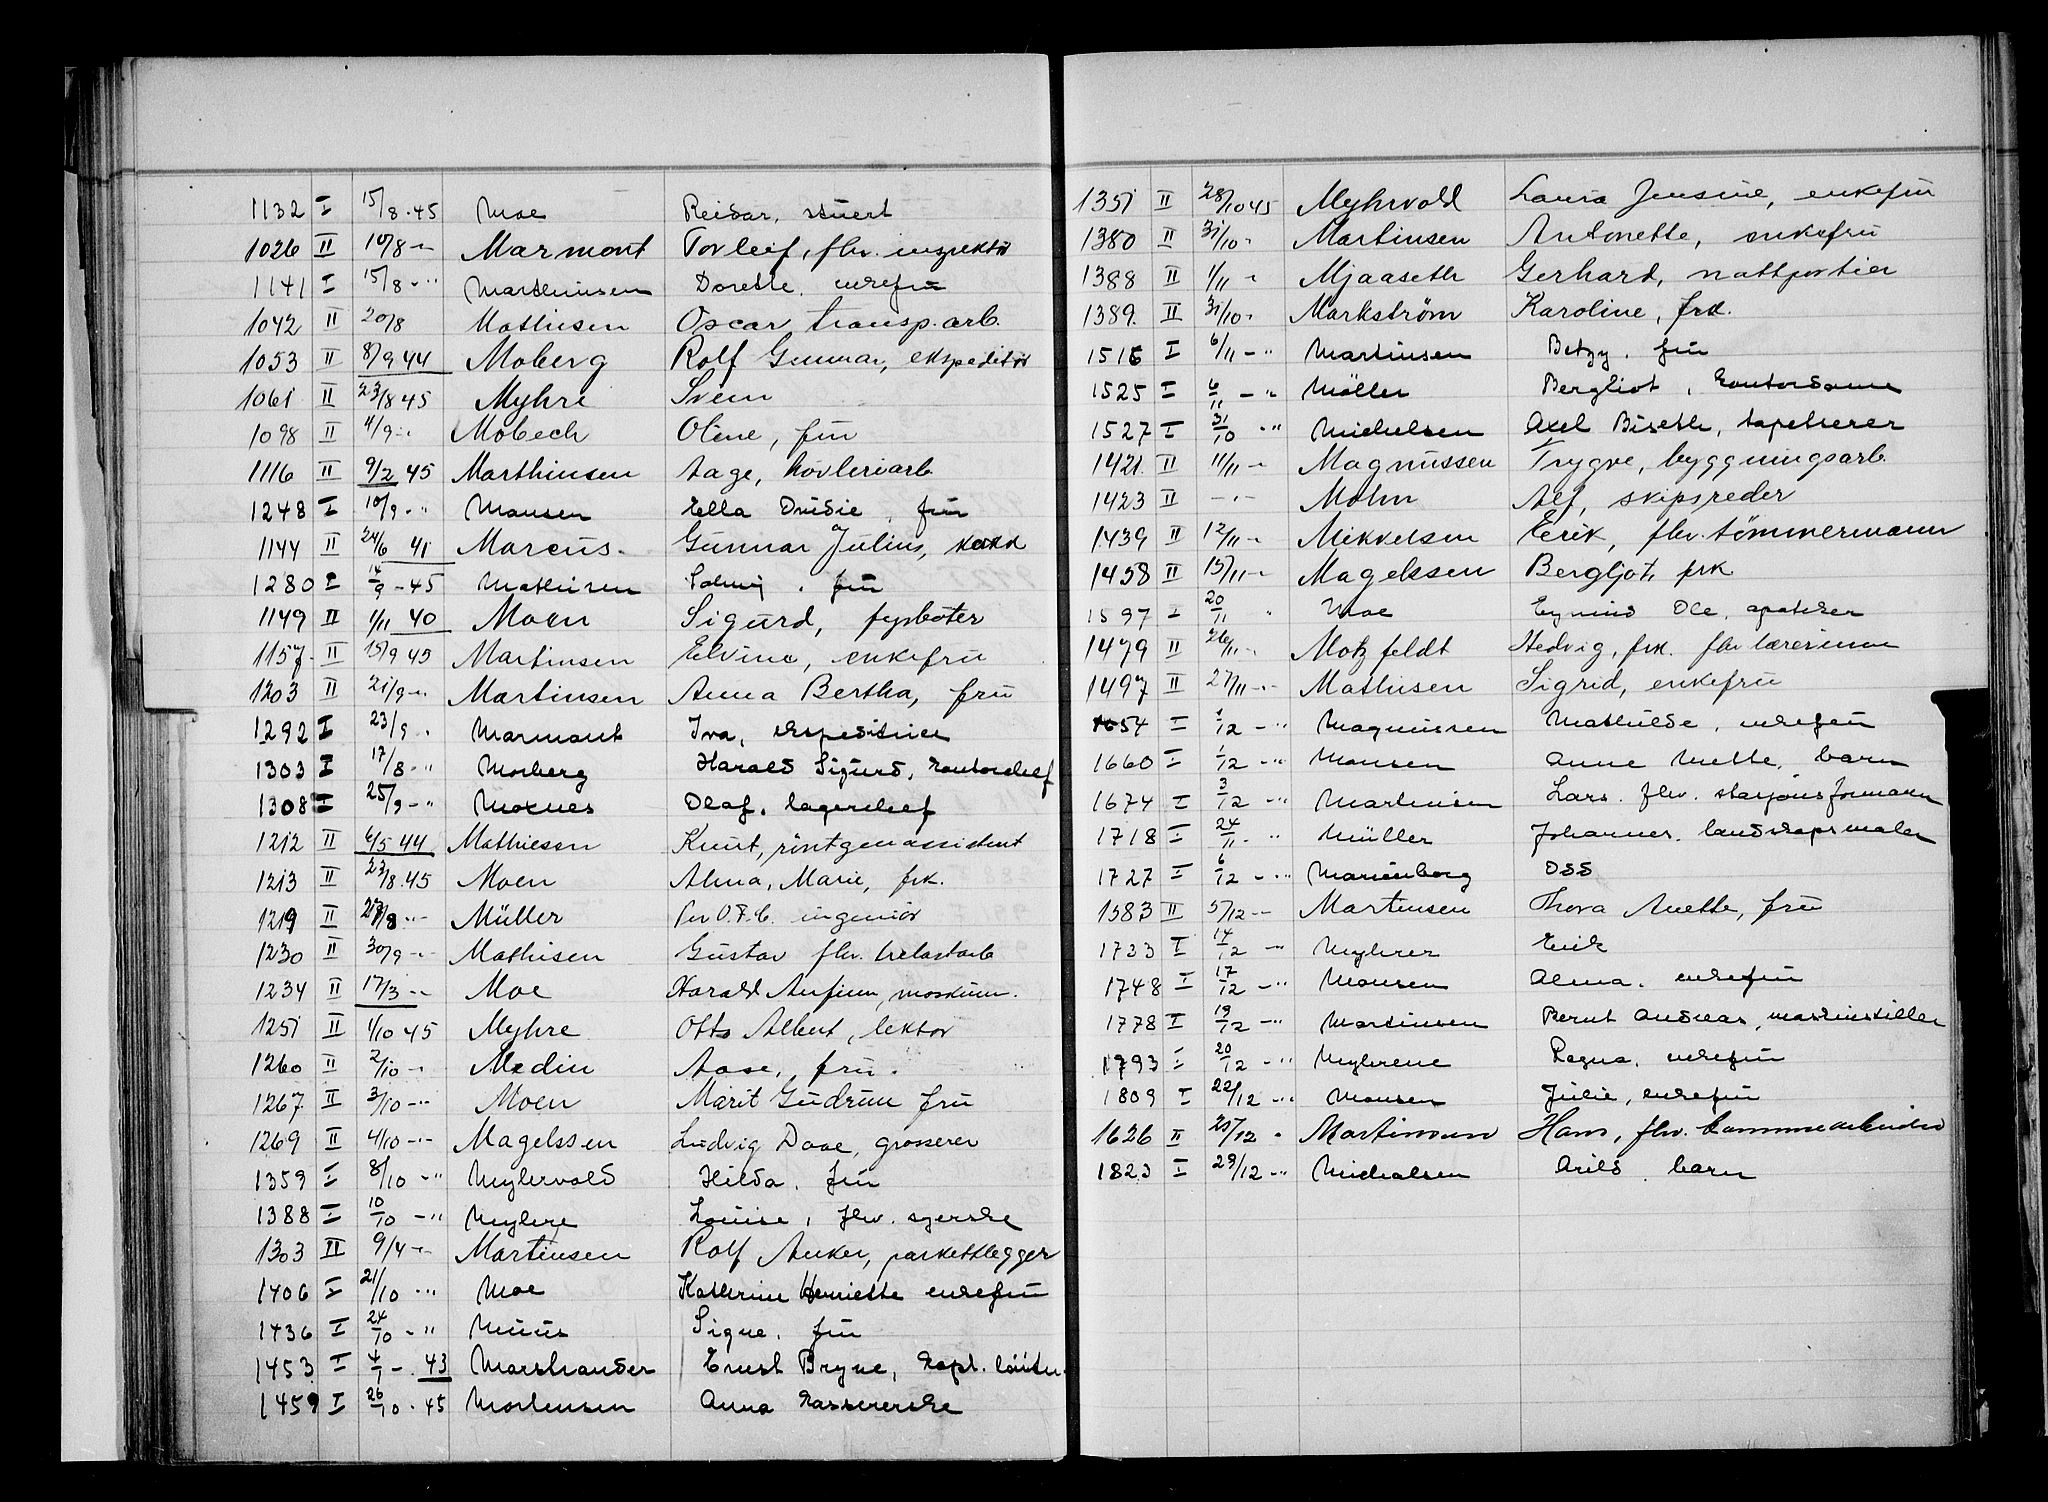 1132 I 15/8-45 Moe Reidar, stuert
1026 II 10/8 -"- Marmont Torleif, fhv. inspektør
1141 I 15/8 -"- Marthinsen Dorette, enkefru
1042 II 20/8 Mathisen Oscar, transp.arb.
1053 II 8/9 44 Moberg Rolf Gunnar, ekspeditør
1061 II 23/8 45 Myhre Svein
1098 II 4/9 -"- Mobech Olene, fru
1116 II 9/2 45 Marthinsen Aage, høvleriarb.
1248 I 10/9 -"- Monsen Ella, fru
1144 II 24/6 41 Marcus Gunnar Julius, kokk
1280 I 14/9-45 Mathisen Solveig, fru
1149 II 1/11 40 Moen Sigurd, fyrbøter
1157 II 15/9 45 Martinsen Elvine, enkefru
1203 II 21/9 -"- Martinsen Anna Bertha, fru
1292 I 23/9 " Marmont Iva, ekspeditrice
1303 I 17/8 -" Morberg Harald Sigurd, kontorchef
1308 I 25/9 -" Moxnes Olaf, lagerchef
1212 II 6/5 44 Mathiesen Knut, röntgenassistent
1213 II 23/8.45 Moen Alma, Marie, frk.
1219 II 27/8 -"- Müller Per O.F.C. ingeniør
1230 II 30/9 -"- Mathisen Gustav fhv.
1234 II 17/3 -"- Moe Harald Anfinn, maskinm.
1251 II 1/10 45 Myhre Otto Albert, lektor
1260 II 2/10 -"- Medin Aase, fru.
1267 II 3/10 -"- Moen Marit Gudrun fru
1269 II 4/10 -"- Magelssen Ludvig Daae, grosserer
1359 I 8/10 -" Myhrvold Hilda, fru
1388 I 10/10 -" Myhre Louise, fhv. syerske
1303 II 9/4 -"- Martinsen Rolf Anker, parkettlegger
1406 I 21/10 -" Moe Kathrine Henriette enkefru
1436 I 24/10 -" Muus Signe, fru
1453 I 4/1 - 43 Marstrander Ernst Bryne, kapt. løitn.
1459 I 26/10 - 45 Mortensen Anna kassererske
1351 II 28/10 45 Myhrvold Laura Jensine, enkefru
1380 II 31/10 " Martinsen Antonette, enkefru
1388 II 1/11 " Mjaaseth Gerhard, nattportier
1389. II 31/10 " Markström Karoline, frk.
1516 I 6/11 -" Martinsen Betzy, fru
1525 I 6/11 -" Möller Bergliot, kontordame
1527 I 31/10 " Michelsen Axel Biseth, tapetserer
1421. II 11/11 -"- Magnussen Trygve, byggningsarb.
1423 II -"- Mohn Alf, skipsreder
1439 II 12/11 -"- Mikkelsen Erik, fhv. tömmermann
1458 II 15/11 -"- Magelssen Bergljot, frk
1597 I 20/11 " Moe Eymund Ole, apoteker
1479 II 26/11 " Motzfeldt Hedvig, frk. fhv lærerinne
1497 II 27/11 -"- Mathisen Sigrid, enkefru
1654 I 1/12 -" Magnussen Mathilde, enkefru
1660 I 1/12 -" Monsen Anne Mette, barn
1674 I 3/12 -" Martinsen Lars, fhv. stasjonsformann
1718 I 24/11 " Müller Johannes, landskapsmaler
1727 I 6/12 -" Marienborg Odd
1583 II 5/12 -"- Martinsen Thora Anette, fru
1733 I 14/12 -" Myhrer Erik
1748 I 17/12 -" Monsen Alma, enkefru
1778 I 19/12 -" Martinsen Bernt Andreas, maskinstiller
1793 I 20/12 -" Myhrene Ragna, enkefru
1809 I 22/12 -" Monsen Julie, enkefru
1626 II 25/12 " Martinsen Hans, fhv.
1823 I 29/12 -" Michalsen Arild, barn